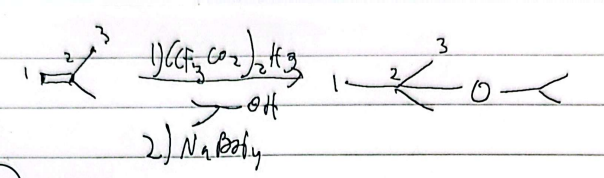 3
2
1
1) (CF3CO2)2Hg
OH
2) NaBH4
3
2
1
O